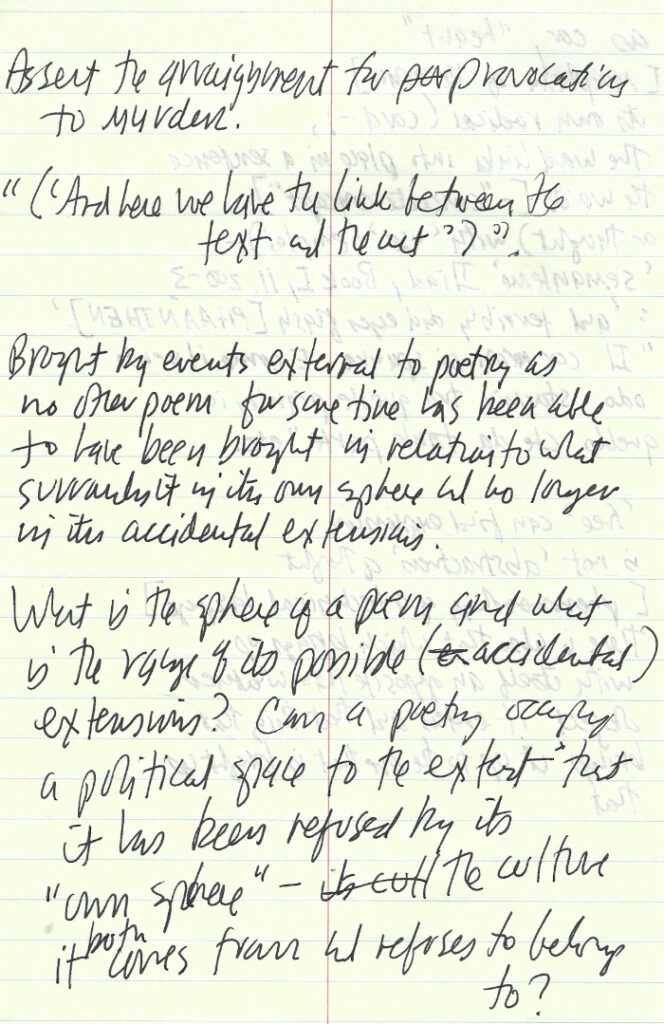 Assert the arraignment for provocations
to murder.
"('And here we have the link between the
text and the act')".
Brought by events external to poetry as
no other poem for some time has been able
to have been brought in relation to what
surrounds it in its own sphere and no longer
in its accidental extensions.
What is the sphere of a poem and what
is the range of its possible (accidental)
extensions? Can a poetry occupy
a political space to the extent that
it has been refused by its
"own sphere" – the culture
it both comes from and refuses to belong
to?